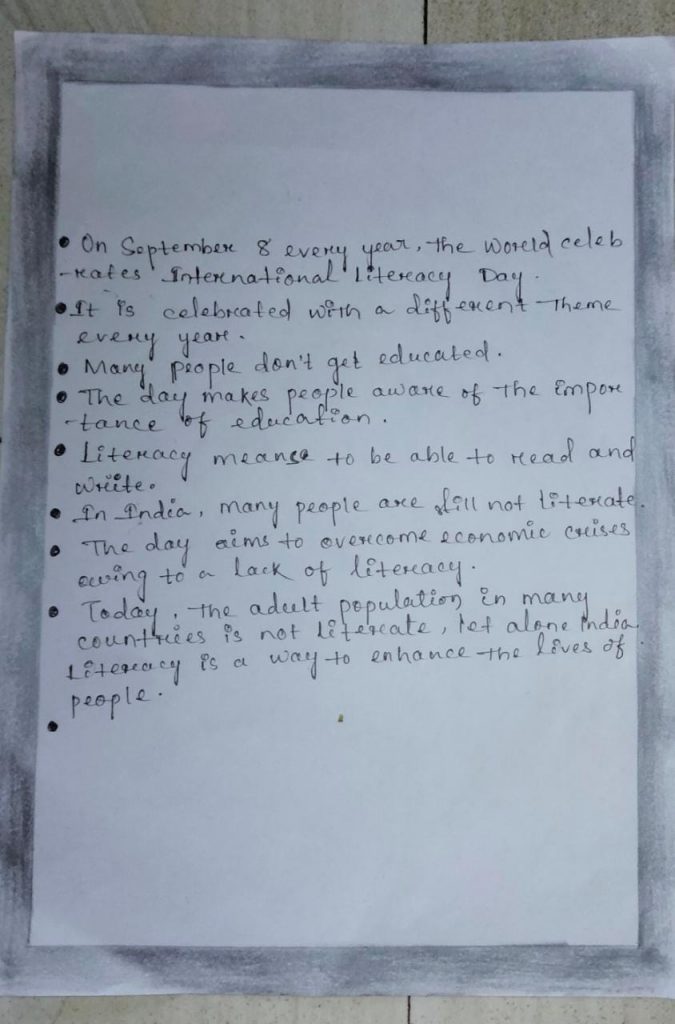 • On September 8 every year, the World celeb
-rates International Literacy Day.
• It is celebrated with a different theme
every year.
• Many people don't get educated.
• The day makes people aware of the impor
-tance of education.
• Literacy means to be able to read and
write.
• In India, many people are still not literate.
• The day aims to overcome economic crises
owing to a lack of literacy.
• Today, the adult population in many
countries is not literate, let alone India.
Literacy is a way to enhance the lives of
people.
•